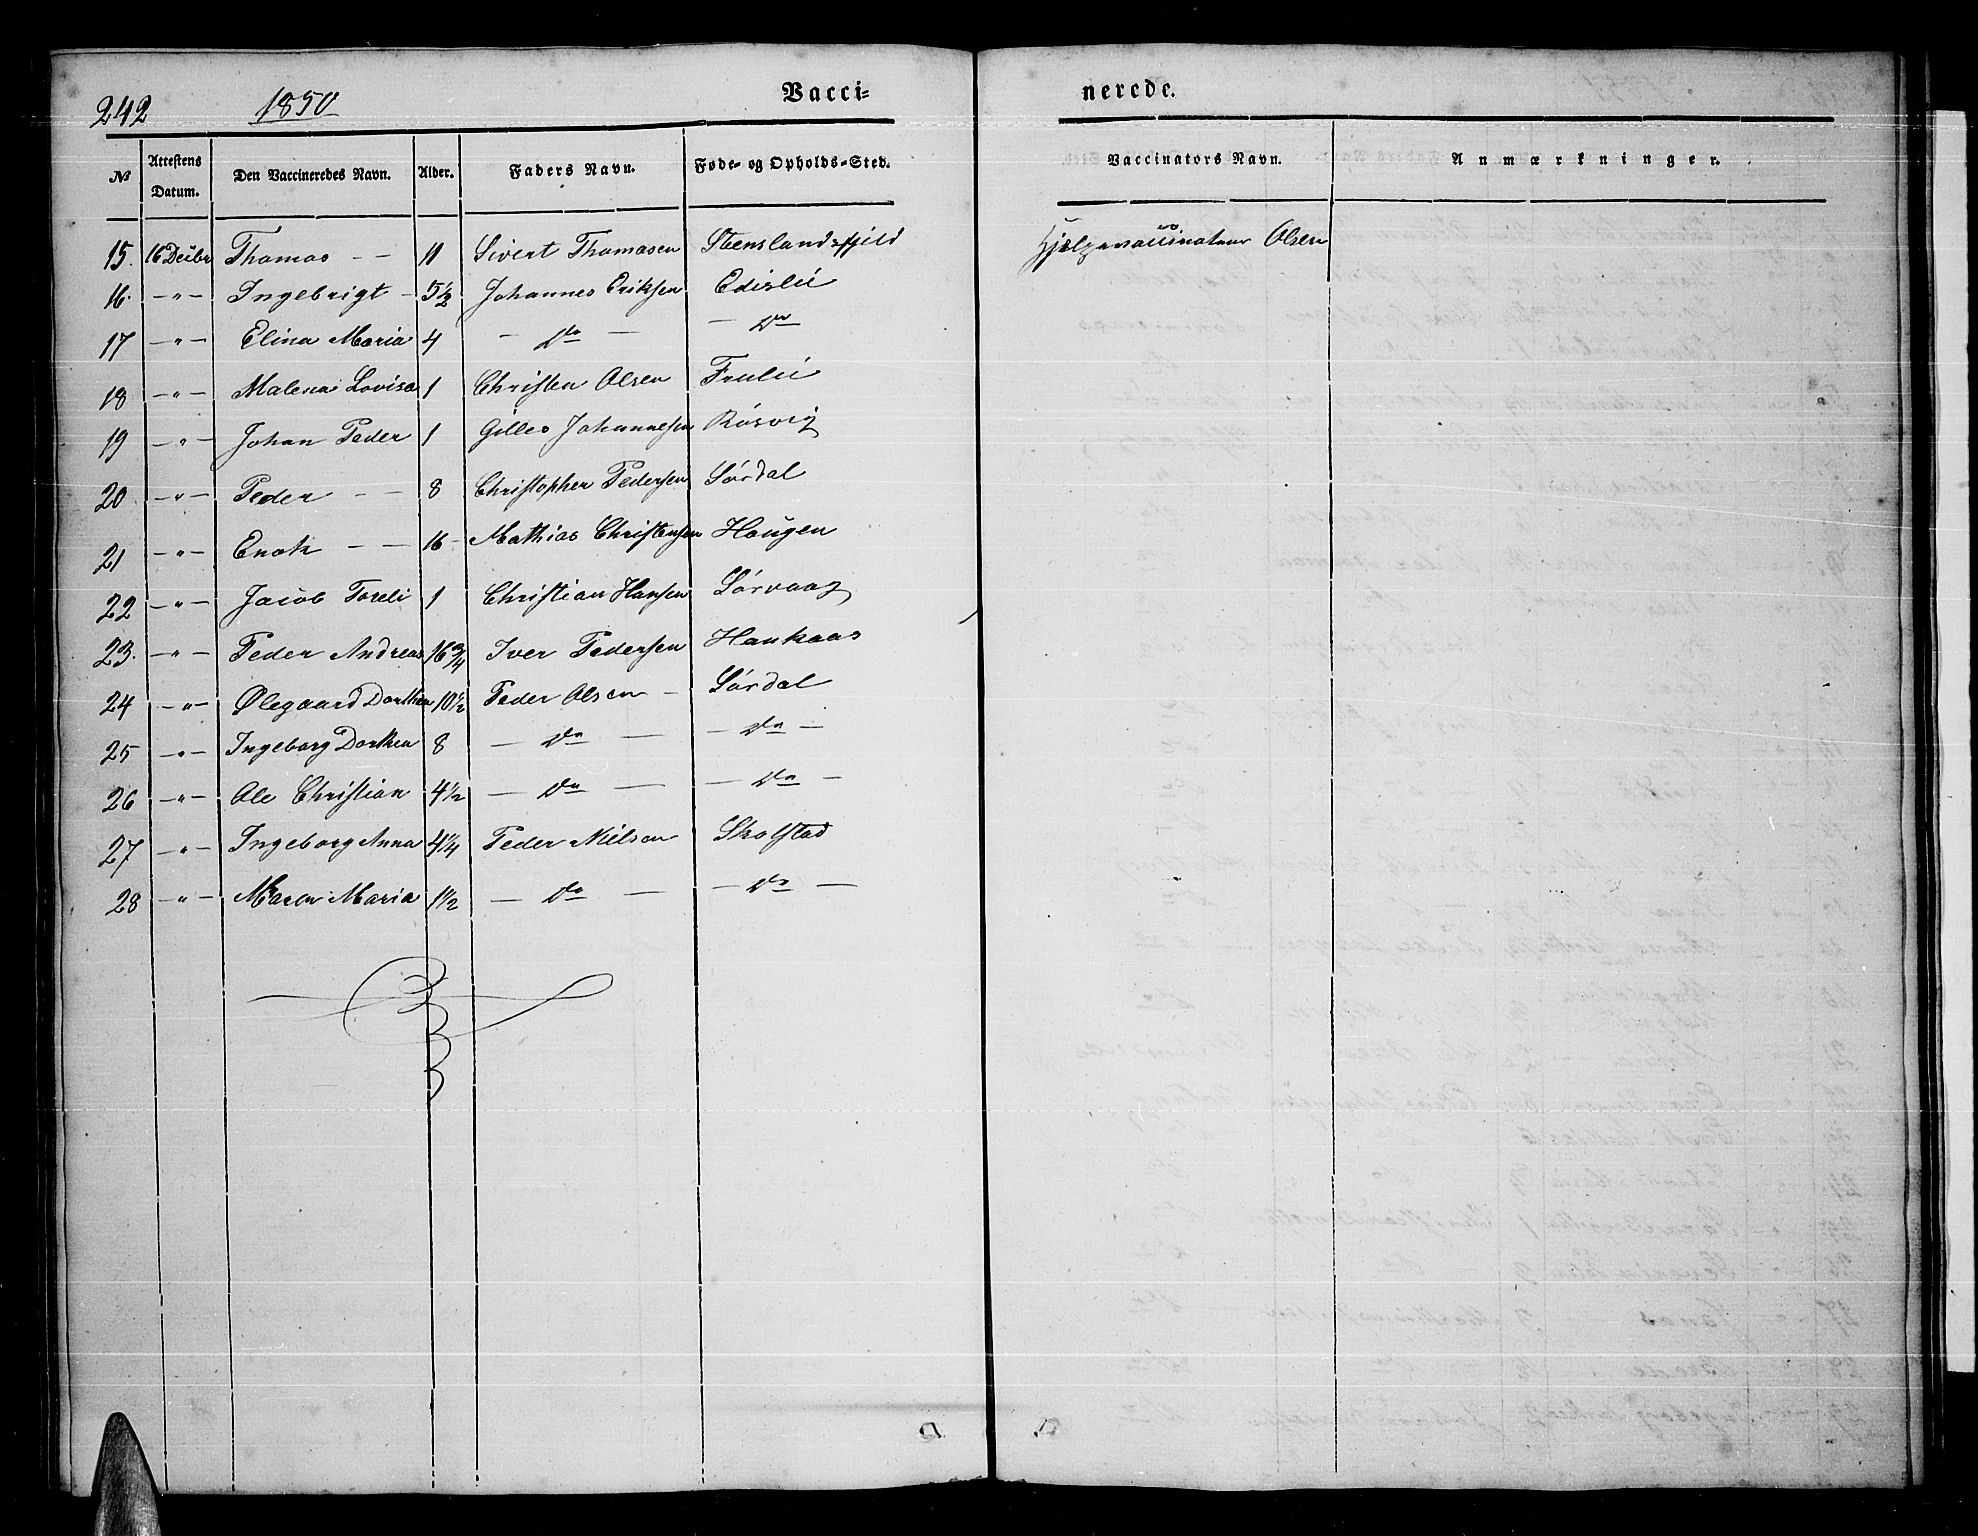 242 1850 Vacci= nerede.
№ Attestens Datum. Den Vaccineredes Navn. Alder. Faders Navn. Føde- og Opholds-Sted. Vaccinators Navn. Anmærkninger.
15. 16 Decbr Thomas - - 11 Sivert Thomasen Stenslandsfjeld Hjelpevaccinateur Olsen
16. - " - Ingebrigt - 5 1/2 Johannes Eriksen
17 - " - Elina Maria 4 - Do - - Do
18 - " - Malena Lovisa 1 Christen Olsen
19 - " - Johan Peder 1 Gilles Johannesen Røsvig
20 - " - Peder - - 8 Christopher Pedersen Sørdal
21 - " - Enok - - 16 - Mathias Christensen Haugen
22 - " - Jacob Toreli 1 Christian Hansen Sørvaag
23. - " - Peder Andreas 16 3/4 Iver Pedersen Haukaas
24 - " - Ølegaard Dorthea 10 1/2 Peder Olsen - Sørdal
25 - " - Ingeborg Dorthea 8 - Do - - Do -
26 - " - Ole Christian 4 1/2 - Do - - Do -
27 - " - Ingeborg Anna 4 1/4 Peder Nielsen Skolstad
28 - " - Maren Maria 1 1/2 - Do - - Do -